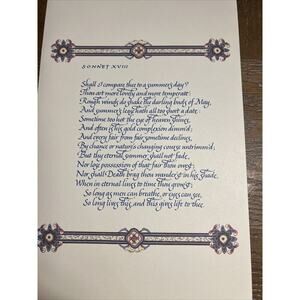 SONNET XVIII
Shall I compare thee to a summer's day?
Thou art more lovely and more temperate:
Rough winds do shake the darling buds of May,
And summer's lease hath all too short a date:
Sometime too hot the eye of heaven shines,
And often is his gold complexion dimm'd;
And every fair from fair sometime declines,
By chance or nature's changing course untrimm'd;
But thy eternal summer shall not fade,
Nor lose possession of that fair thou owest;
Nor shall Death brag thou wander'st in his shade,
When in eternal lines to time thou growest;
So long as men can breathe, or eyes can see,
So long lives this, and this gives life to thee.